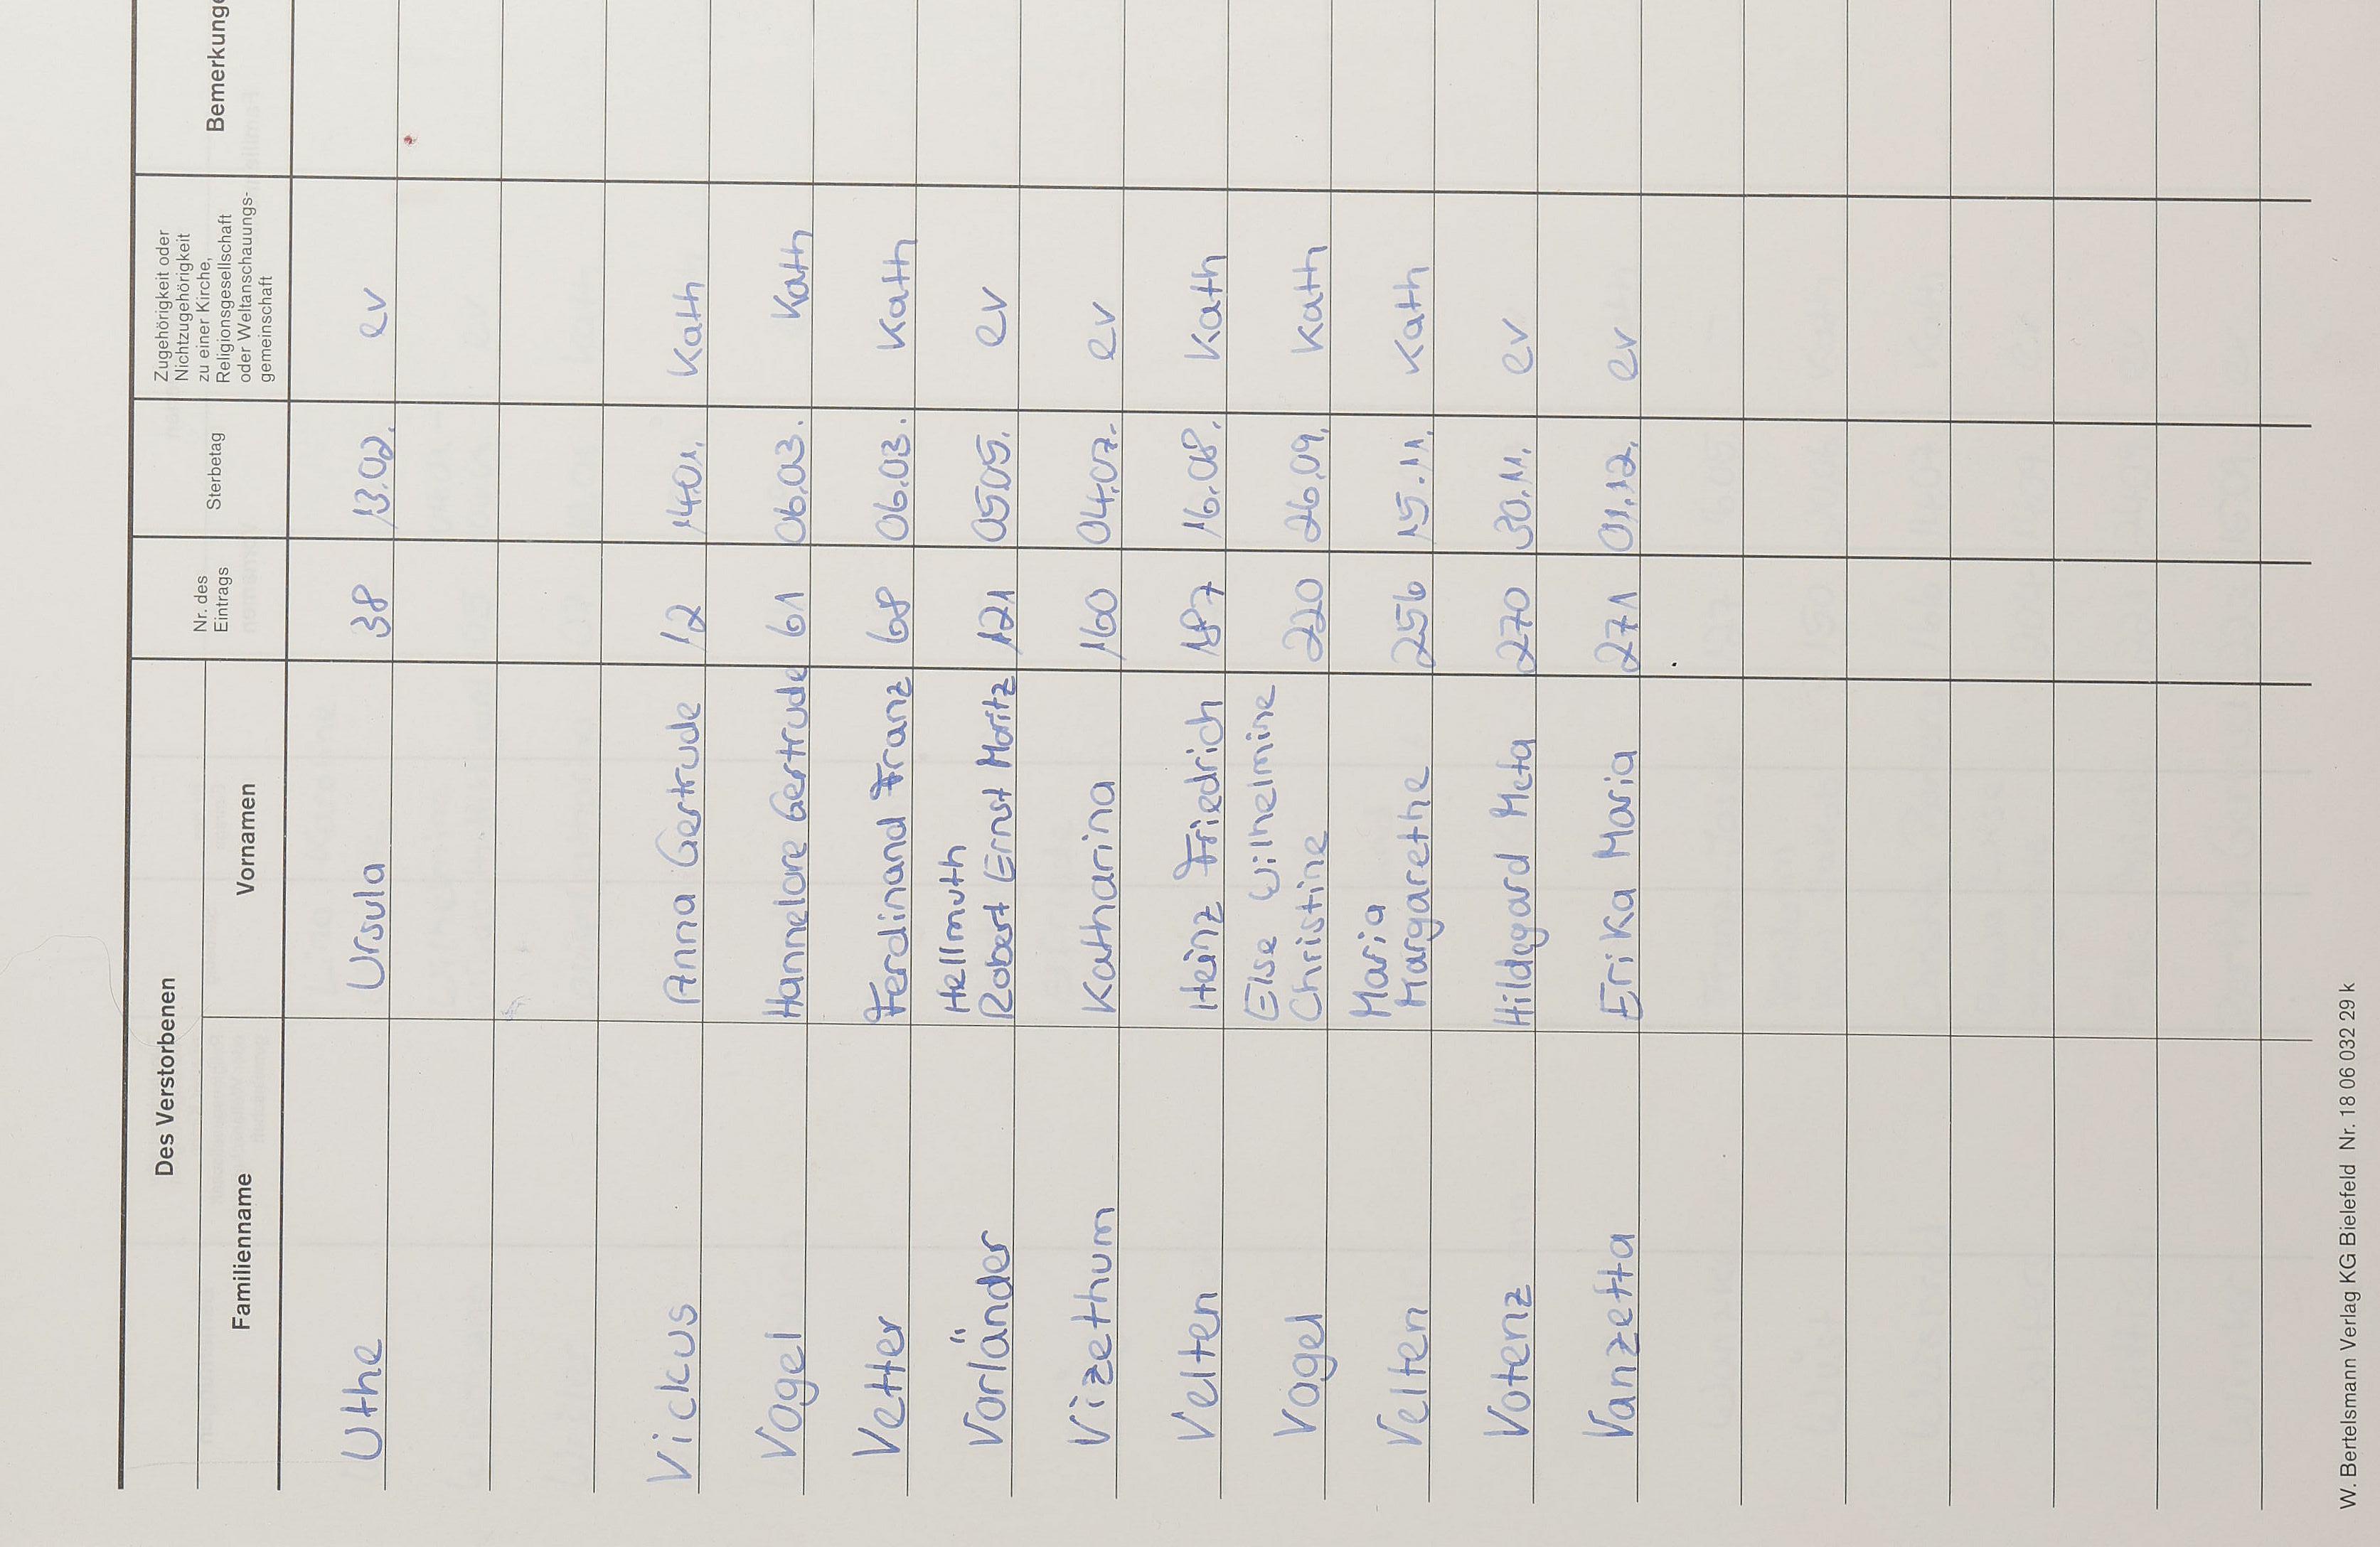 Des Verstorbenen
Familienname
Vornamen
Nr. des
Eintrags
Sterbetag
Zugehörigkeit oder
Nichtzugehörigkeit
zu einer Kirche,
Religionsgesellschaft
oder Weltanschauungs-
gemeinschaft
Uthe Ursula 38 13.02. ev
Vickus Anna Gertrude 12 14.01. Kath
Vogel Hannelore Gertrude 61 06.03. Kath
Vetter Ferdinand Franz 68 06.03. Kath
Hellmuth
Vorländer Robert Ernst Moritz 121 05.05. ev
Vizethum Katharina 160 04.07. ev
Velten Heinz Friedrich 187 16.08. Kath
Else Wilhelmine
Vogel Christine 220 26.09. Kath
Maria
Velten Margarethe 256 15.11. Kath
Votenz Hildegard Meta 270 30.11. ev
Vanzetta Erika Maria 271 01.12. ev
W. Bertelsmann Verlag KG Bielefeld Nr. 18 06 032 29 k